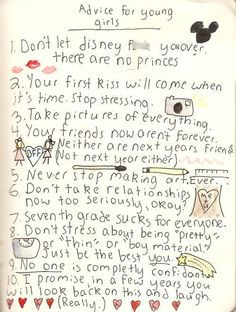 Advice for young
girls
1. Don't let disney f you over.
there are no princes
2. Your first kiss will come when
it's time. Stop stressing.
3. Take pictures of everything.
4. Your friends now arent forever.
BFF
Neither are next years friends
(Not next year either)
5. Never stop making art. Ever.
6. Don't take relationships
now too seriously, okay?
7. Seventh grade sucks for everyone.
8. Don't stress about being "pretty"
or "thin" or "boy material"
Just be the best you.
9. No one is completly confidant
10. I promise, in a few years you
will look back on this and laugh.
(Really.)